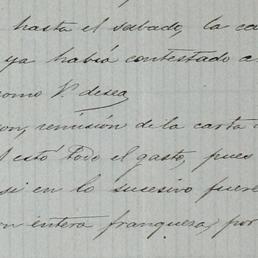 hasta el sabado, la ca
ya habia contestado a
como V. desea
on, remisión de la carta
está todo el gasto, pues
si en lo sucesivo fuere
on entera franqueza, por